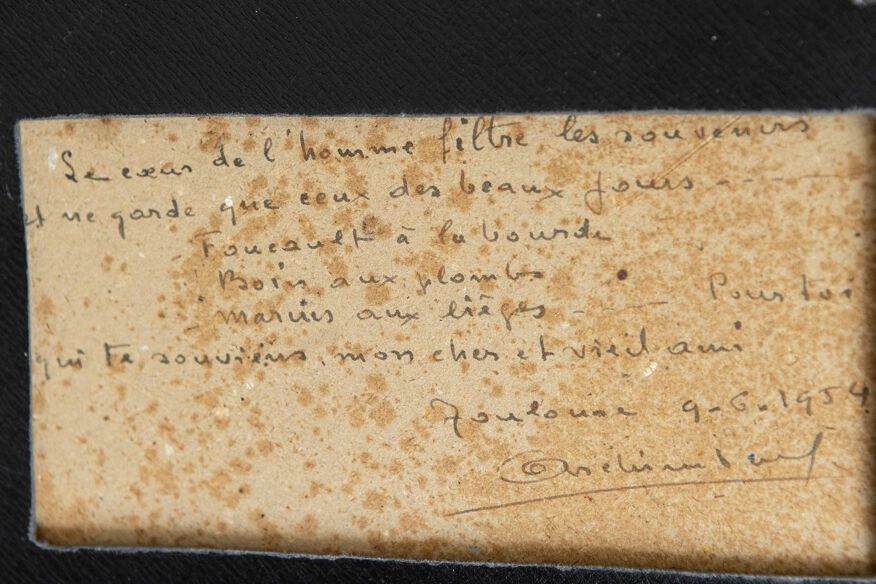 Le cœur de l'homme filtre les souvenirs
et ne garde que ceux des beaux jours - - -
Foucault à la bourde
Boin aux plombs
marius aux lièges - - - Pour toi
qui te souviens, mon cher et vieil ami
Toulouse 9-6-1954